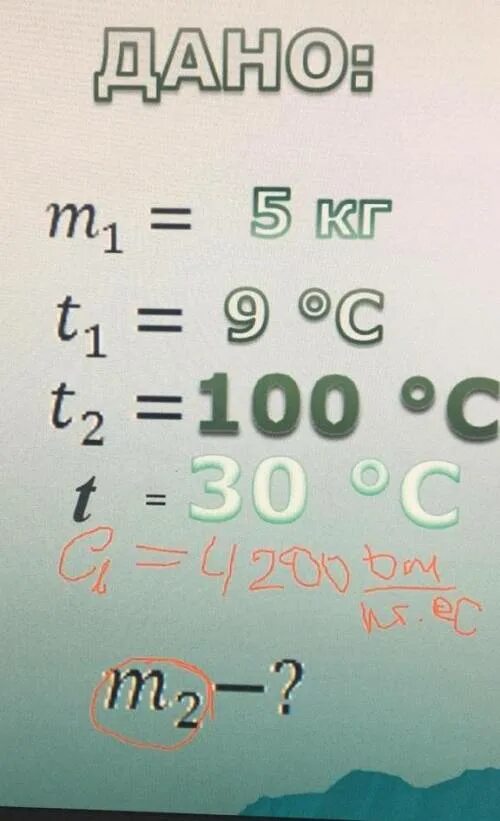 ДАНО:
m₁ = 5 кг
t₁ = 9 °C
t₂ = 100 °C
t = 30 °C
C₁ = 4200 Дж/кг·°C
m₂ – ?